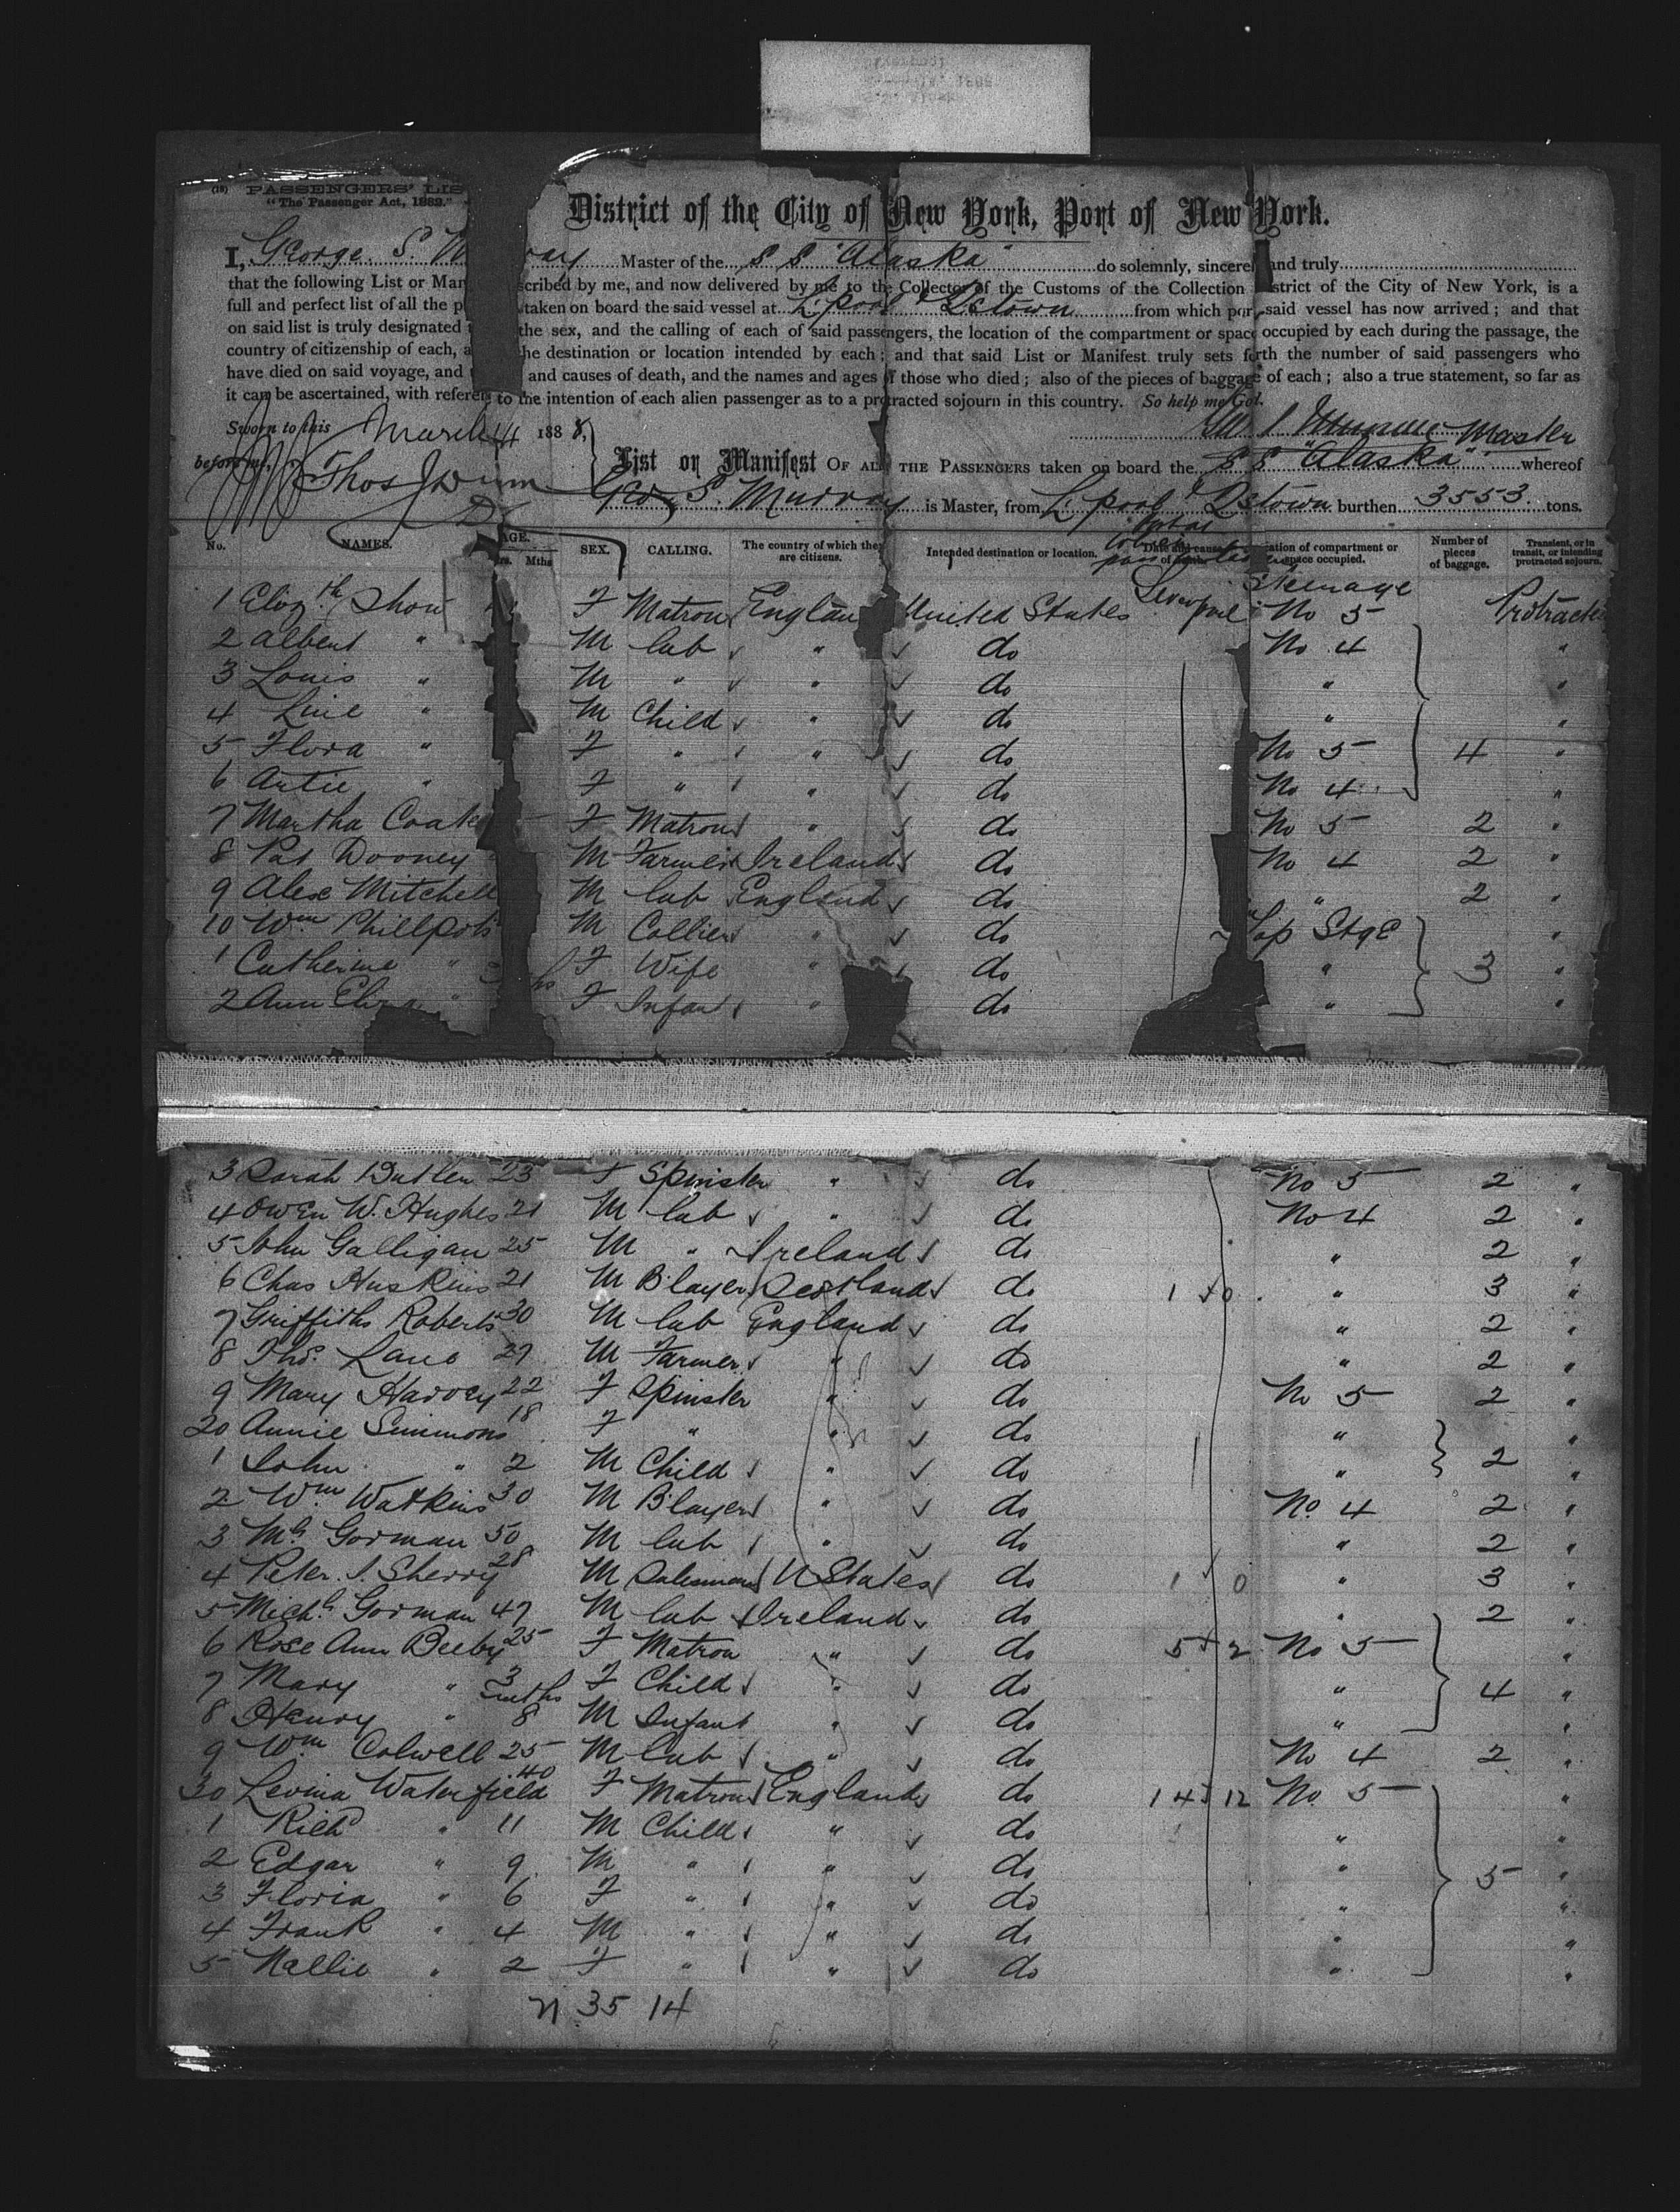 (18) PASSENGERS' LIS
"The Passenger Act, 1882."
District of the City of New York, Port of New York.
I, George S. M ray Master of the S S "Alaska" do solemnly, sincerel and truly
that the following List or Man scribed by me, and now delivered by me to the Collector of the Customs of the Collection strict of the City of New York, is a
full and perfect list of all the p taken on board the said vessel at L'pool & Qstown from which por said vessel has now arrived; and that
on said list is truly designated the sex, and the calling of each of said passengers, the location of the compartment or space occupied by each during the passage, the
country of citizenship of each, a he destination or location intended by each; and that said List or Manifest truly sets forth the number of said passengers who
have died on said voyage, and and causes of death, and the names and ages of those who died; also of the pieces of baggage of each; also a true statement, so far as
it can be ascertained, with refere to the intention of each alien passenger as to a protracted sojourn in this country. So help me God.
Sworn to this March 14 1888,
Master
before me, Thos
List or Manifest OF ALL THE PASSENGERS taken on board the S S "Alaska" whereof
Geo S. Murray is Master, from L'pool & Qstown burthen 3553 tons.
No. NAMES. AGE. Yrs. Mths SEX. CALLING. The country of which they are citizens. Intended destination or location. Date and cause of death. Location of compartment or space occupied. Number of pieces of baggage. Transient, or in transit, or intending protracted sojourn.
Steerage
1 Elizth Show F Matron Englan United States Liverpool No 5 Protracte
2 Albert " M lab " do No 4 "
3 Louis " M " " do " "
4 " M Child " do " "
5 Flora " F " " do No 5 4 "
6 Artie " F " " do No 4 "
7 Martha Coate F Matron " do No 5 2 "
8 Pat Dooney M Farmer Ireland do No 4 2 "
9 Alex Mitchell M lab England do " 2 "
10 Wm Phillpots M Collier " do Top Stge "
1 Catherine " F Wife " do " 3 "
2 Ann Eliza " F Infant " do " "
3 Sarah Butler 23 F Spinster " do No 5 2 "
4 Owen W. Hughes 21 M lab " do No 4 2 "
5 John Galligan 25 M " Ireland do " 2 "
6 Chas Huskins 21 M B'layer Scotland do 1 0 " 3 "
7 Griffiths Roberts 30 M lab England do " 2 "
8 Thos. Lane 27 M Farmer " do " 2 "
9 Mary Harvey 22 F Spinster " do No 5 2 "
20 Annie Simmons 18 F " " do " "
1 John " 2 M Child " do " 2 "
2 Wm Watkins 30 M B'layer " do No. 4 2 "
3 Ml Gorman 50 M lab " do " 2 "
4 Peter J. Sherry 28 M Salesman U States do 1 0 " 3 "
5 Michl Gorman 47 M lab Ireland do " 2 "
6 Rose Ann Beeby 25 F Matron " do 5 2 No 5 "
7 Mary " 3 F Child " do " 4 "
8 Henry " mths 8 M Infant " do " "
9 Wm Colwell 25 M lab " do No 4 2 "
30 Levina Waterfield 40 F Matron England do 14 12 No. 5 "
1 Richd " 11 M Child " do " "
2 Edgar " 9 M " " do " 5 "
3 Floria " 6 F " " do " "
4 Frank " 4 M " " do " "
5 Nallie " 2 F " " do " "
35 14